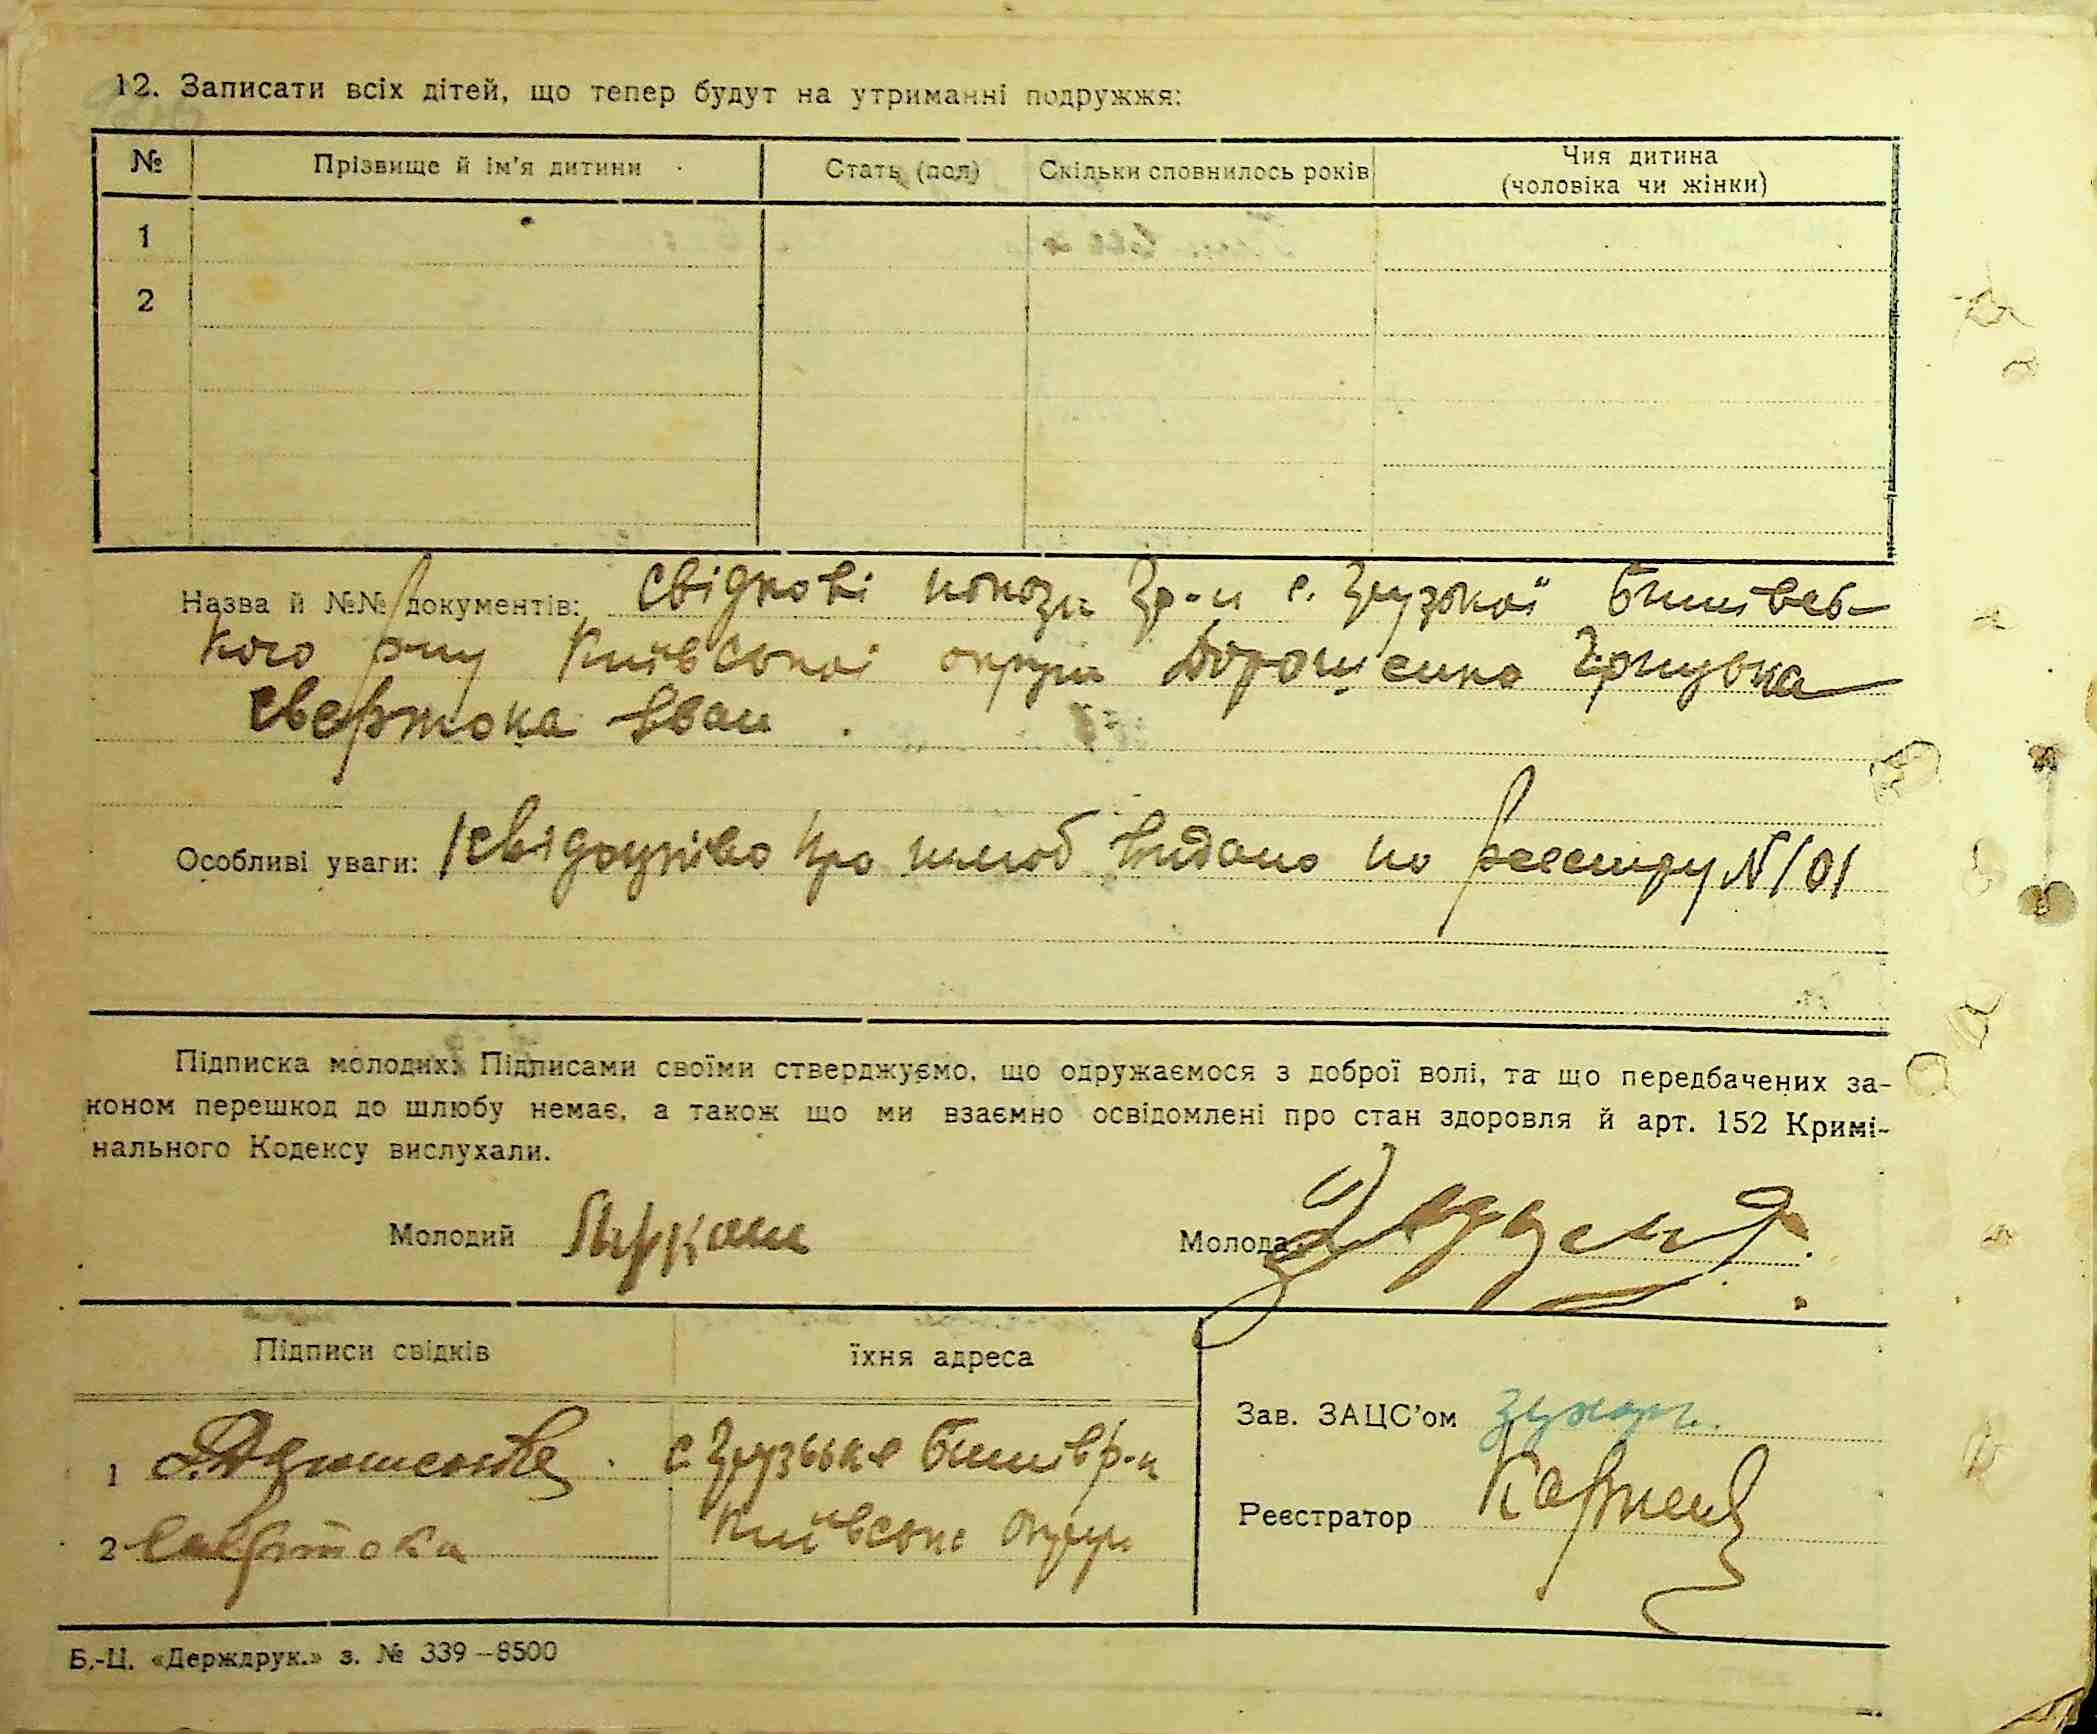 12. Записати всіх дітей, що тепер будут на утриманні подружжя:
№ Прізвище й ім'я дитини Стать (пол) Скільки сповнилось років Чия дитина (чоловіка чи жінки)
1
2
Назва й №№ документів: Свідкові покази гр-н с. Грузької Бишівсь-
кого р-ну Київської округи Дорошенко
Свертока Іван.
Особливі уваги: Свідоцтво про шлюб видано по реєстру N 101
Підписка молодих: Підписами своїми стверджуємо, що одружаємося з доброї волі, та що передбачених за-
коном перешкод до шлюбу немає, а також що ми взаємно освідомлені про стан здоровля й арт. 152 Кримі-
нального Кодексу вислухали.
Молодий Молода
Підписи свідків їхня адреса
Зав. ЗАЦС'ом
1 с. Грузьке Бишів р-н
Реєстратор
2 Київськ. округ.
Б.-Ц. «Держдрук.» з. № 339—8500